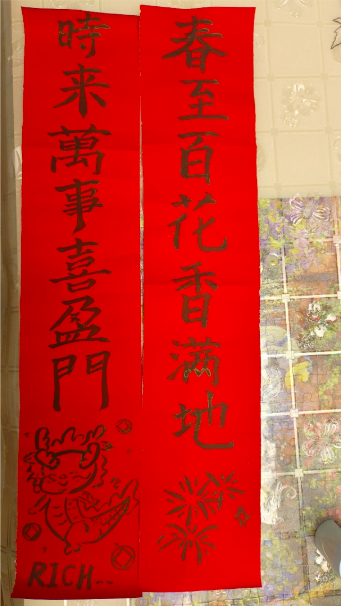 春至百花香滿地
時来萬事喜盈門
RICH..